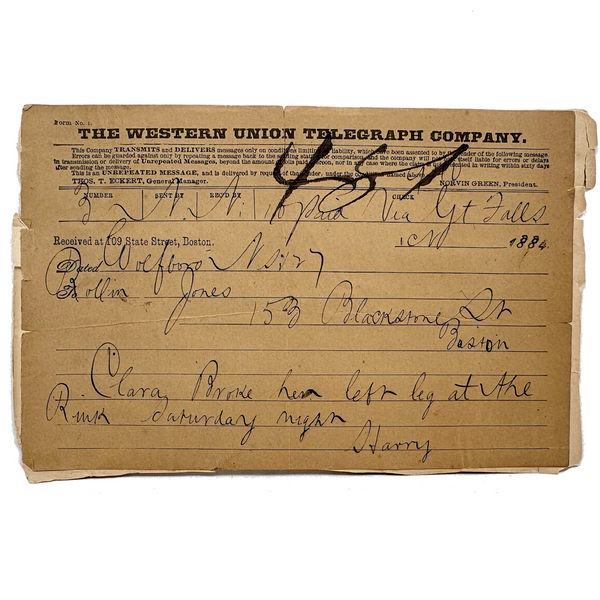 Form No. 1.
THE WESTERN UNION TELEGRAPH COMPANY.
This Company TRANSMITS and DELIVERS messages only on conditions limiting its liability, which have been assented to by the sender of the following message
Errors can be guarded against only by repeating a message back to the sending station for comparison, and the company will not hold itself liable for errors or delays
in transmission or delivery of Unrepeated Messages, beyond the amount of tolls paid thereon, nor in any case where the claim is not presented in writing within sixty days
after sending the message.
This is an UNREPEATED MESSAGE, and is delivered by request of the sender, under the conditions named above.
THOS. T. ECKERT, General Manager. NORVIN GREEN, President.
NUMBER SENT BY REC'D BY CHECK
3 paid Via Gt Falls
Received at 109 State Street, Boston. 1884
Dated Wolfboro N H 27
To Rollin Jones
153 Blackstone St
Boston
Clara Broke her left leg at the
Rink Saturday night
Harry